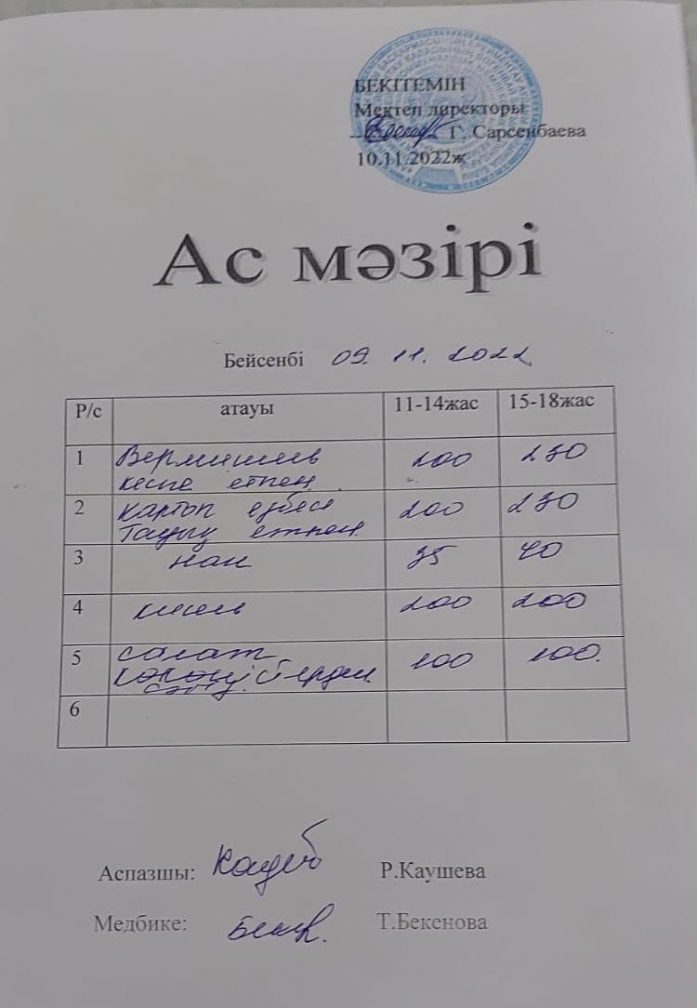 БЕКІТЕМІН
Мектеп директоры:
Г. Сарсенбаева
10.11.2022ж
Ас мәзірі
Бейсенбі 09. 11. 2022
Р/с атауы 11-14жас 15-18жас
1 Вермишель 200 230
кеспе етпен
2 картоп езбесі 200 230
Тауық етпен
3 нан 35 40
4 кисель 200 200
5 салат 100 100.
көкөністерден
6
Аспазшы: Р.Каушева
Медбике: Т.Бекенова